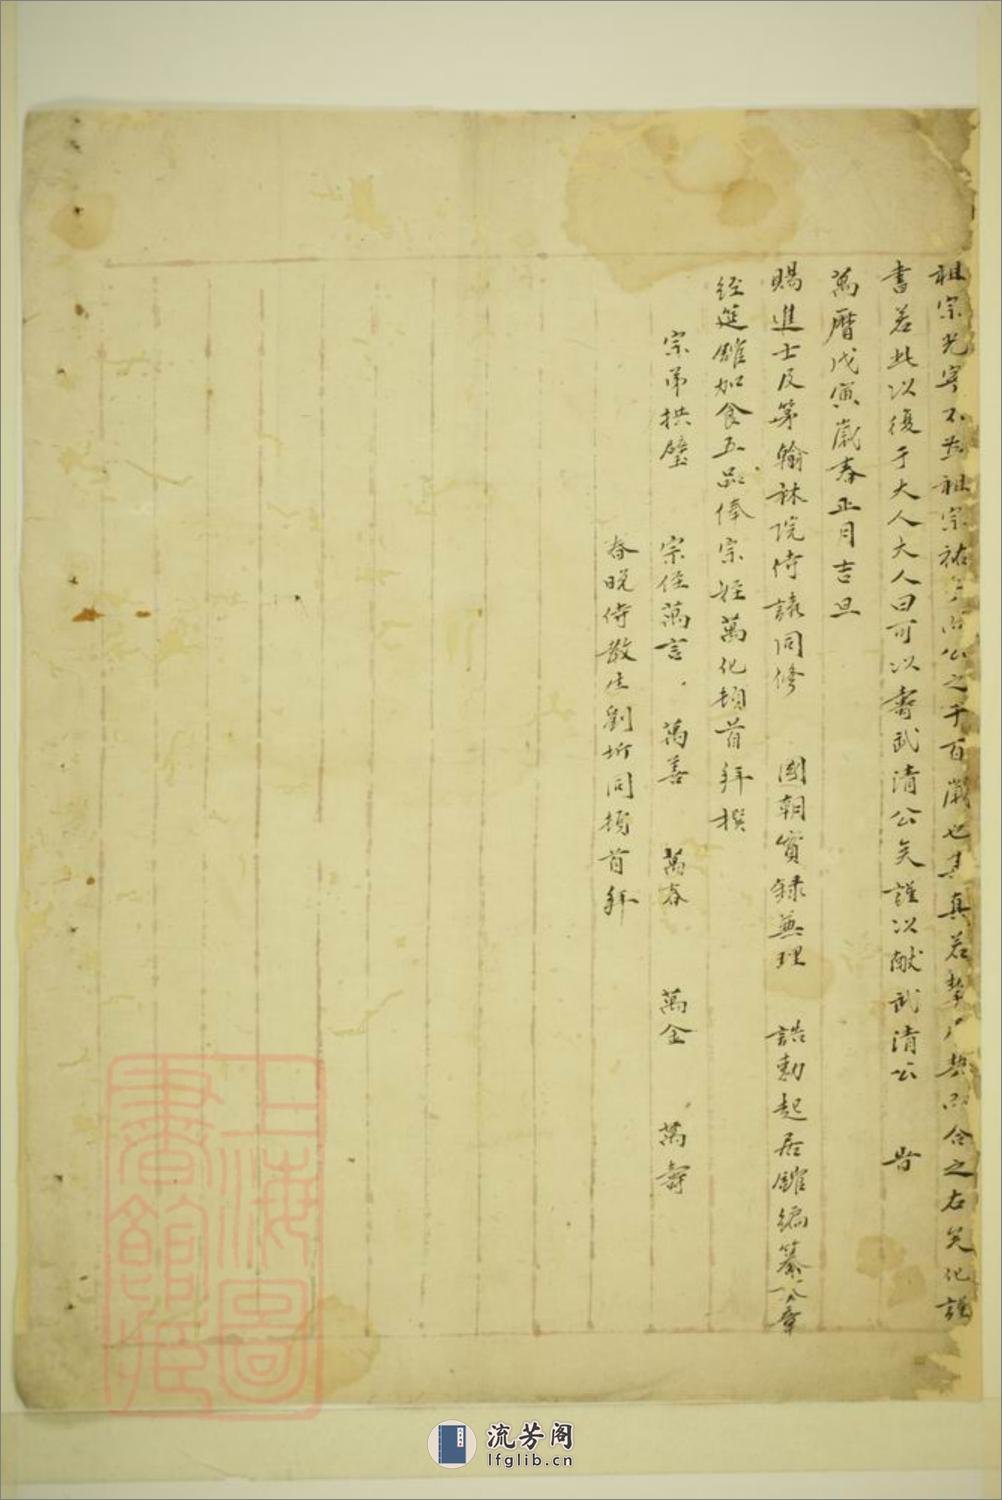 祖宗光寧不為祖宗祐公之千百歲也其真若挈之右矣化謹
書若此以復于大人大人曰可以壽武清公矣謹以献武清公 旹
萬曆戊寅歲春正月吉旦
賜進士及第翰林院侍讀同修 國朝實録兼理 誥勅起居館編纂六章
經筵雖加食五品俸宗姪萬化頓首拜撰
宗弟拱璧 宗侄萬言 萬善 萬春 萬全 萬壽
春晚侍教生劉圻同頓首拜
上海圖書館藏
流芳阁
lfglib.cn